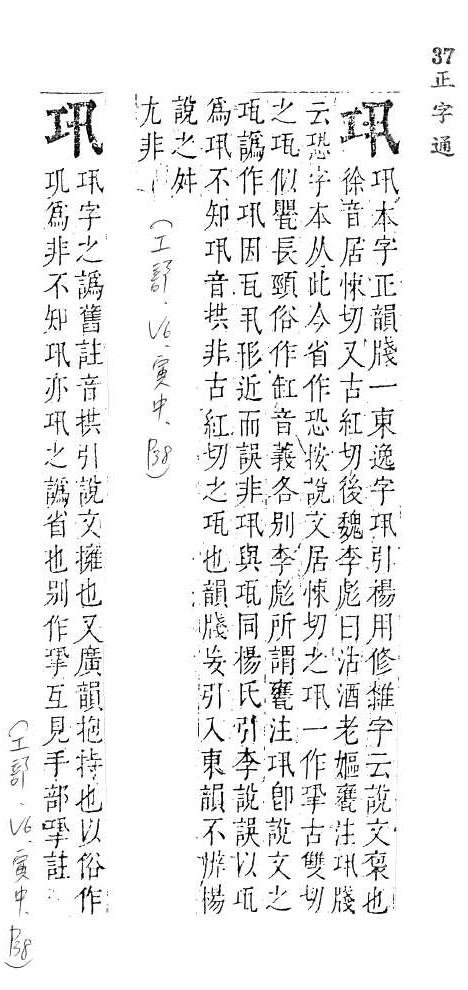 37正字通
巩
巩本字正韻牋一東逸字巩引楊用修雜字云說文褱也
徐音居悚切又古紅切後魏李彪曰沽酒老嫗甕注巩牋
云恐字本从此今省作恐按說文居悚切之巩一作鞏古雙切
之瓨似甖長頸俗作缸音義各別李彪所謂甕注巩卽說文之
瓨譌作巩因瓦丮形近而誤非巩與瓨同楊氏引李說誤以瓨
爲巩不知巩音拱非古紅切之瓨也韻牋妄引入東韻不辨楊
說之舛
尤非
(工部.V6.寅中.P38)
巩
巩字之譌舊註音拱引說文擁也又廣韻抱持也以俗作
巩爲非不知巩亦巩之譌省也別作鞏互見手部註
(工部.V6.寅中.P38)